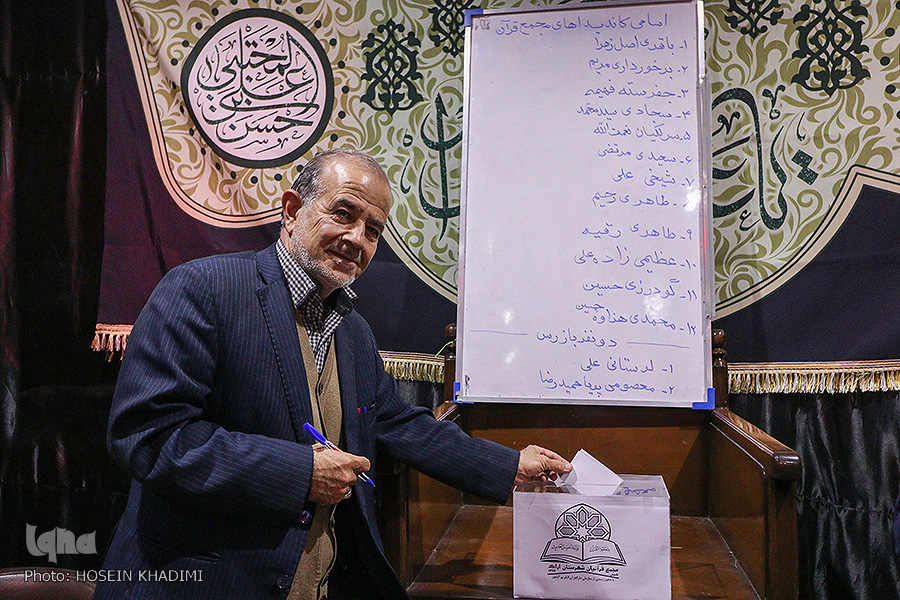 اسامی کاندیداهای مجمع قرآن
۱- باقری اصل زهرا
۲- برخورداری مریم
۳- جفرسته فهیمه
۴- سجادی سیدمحمد
۵- سرلکیان نعمت الله
۶- سعیدی مرتضی
۷- شیخی علی
۸- طاهری رحیم
۹- طاهری رقیه
۱۰- عظیمی زاده علی
۱۱- گودرزی حسین
۱۲- محمدی هزاوه
دو نفر بازرس
۱- لرستانی علی
۲- معصومی پیا حمیدرضا
حسن بن علی المجتبی
مجمع قرآنیان شهرستان اراک
iqna
Photo: HOSEIN KHADIMI